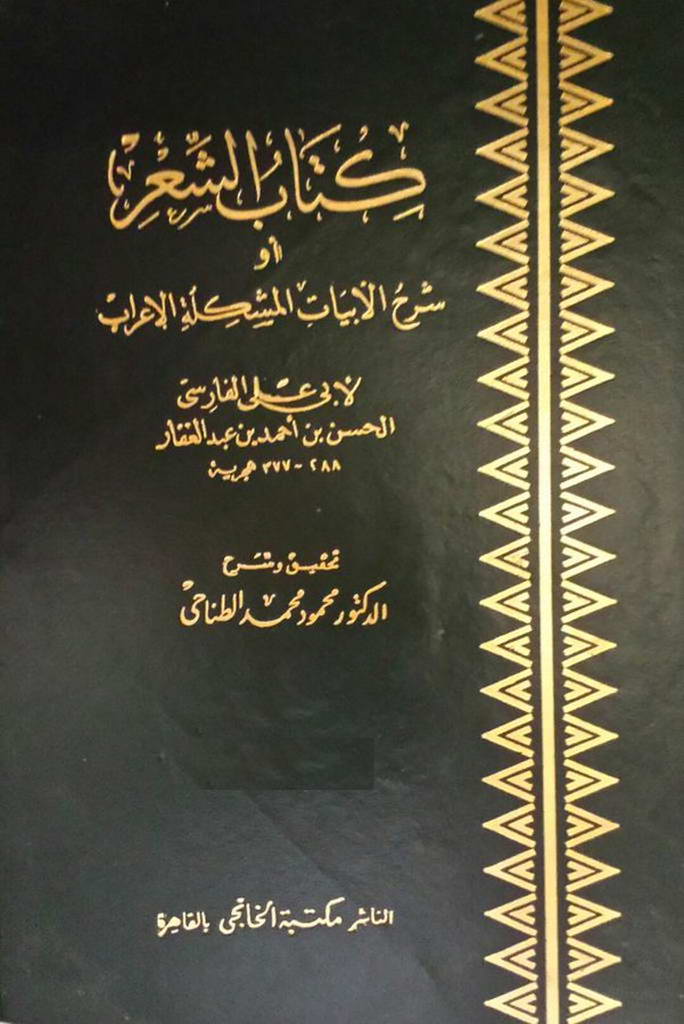 كِتَابُ الشِّعْرِ
أو
شرحُ الأبيَاتِ المشكِلَةِ الإعراب
لأبي علي الفارسي
الحسن بن أحمد بن عبد الغفار
٢٨٨ - ٣٧٧ هجرية
تحقيق وشرح
الدكتور محمود محمد الطناحي
الناشر مكتبة الخانجي بالقاهرة